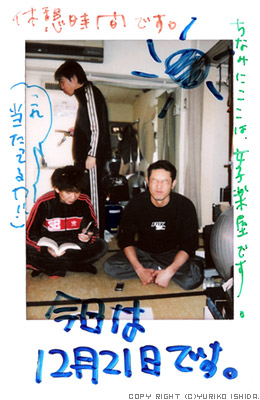 休憩時間です。
ちなみにここは、女子楽屋です。
これ
当たってるカ!!
今日は
12月21日です。
COPY RIGHT (C)YURIKO ISHIDA.